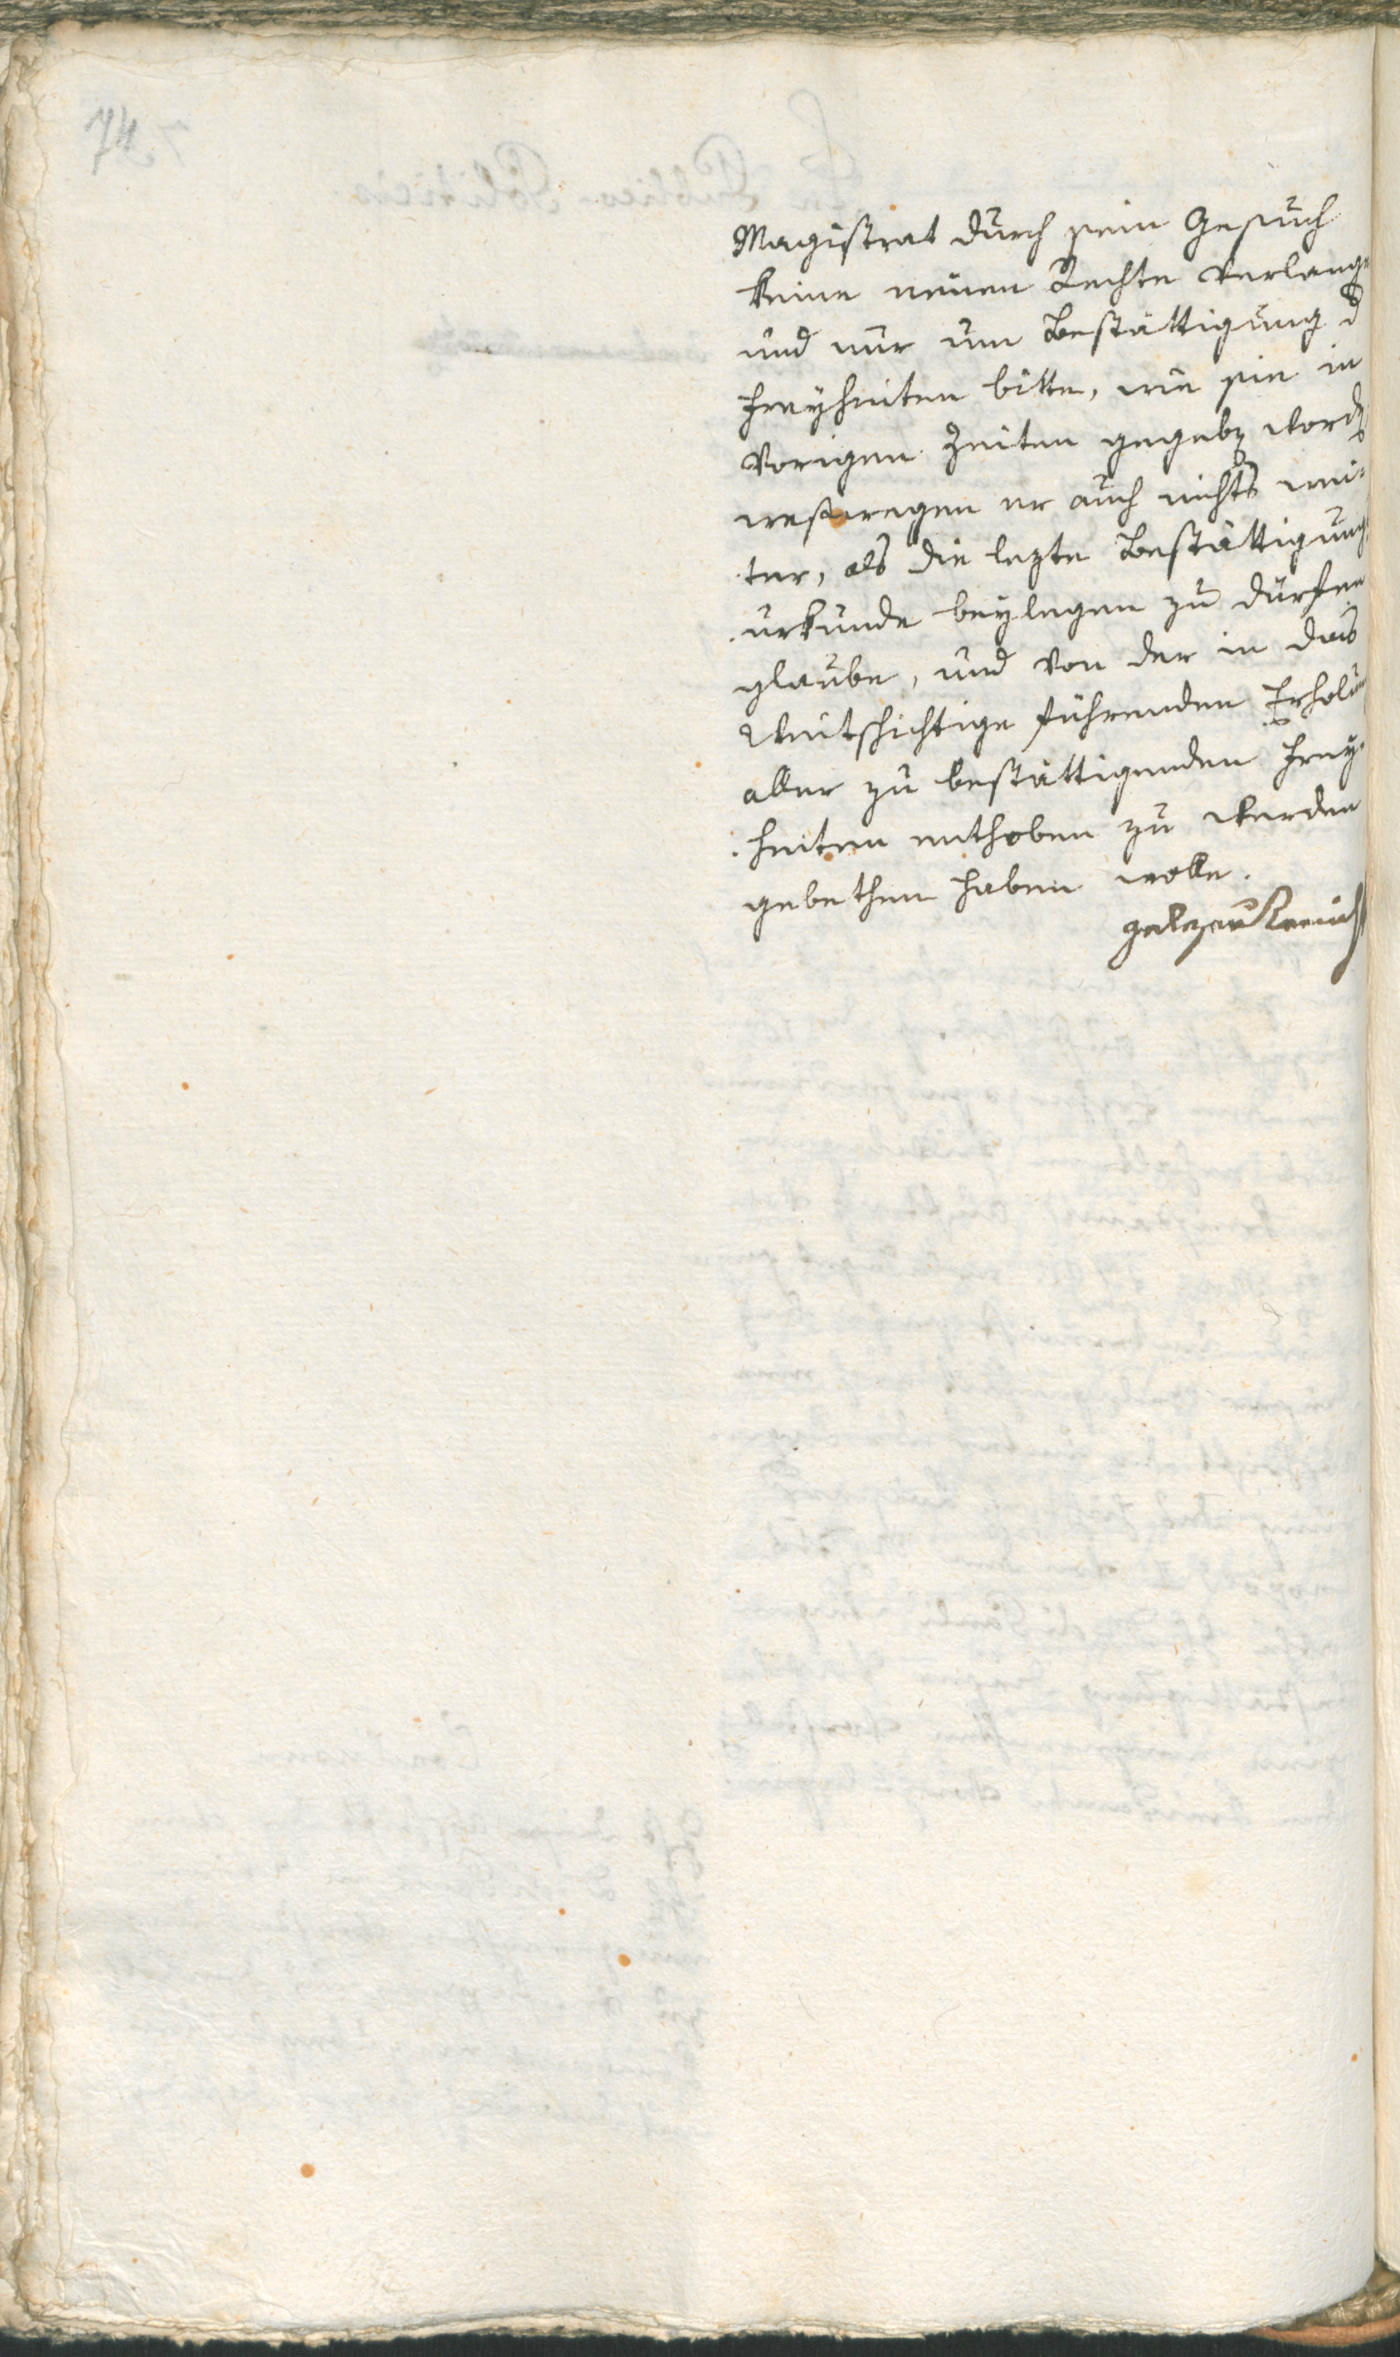 74
Magistrat durch sein Gesuch
keine neuen Rechte verlange
und nur um Bestättigung d
Freyheiten bitte, wie sie in
vorigen Zeiten gegeben word
wesswegen er auch nichts wei-
ter, als die lezte Bestättigung
urkunde beylegen zu dürfen
glaube, und von der in das
Weitschichtige führenden Erholun
aller zu bestättigenden Frey-
heiten enthoben zu werden
gebethen haben wolle.